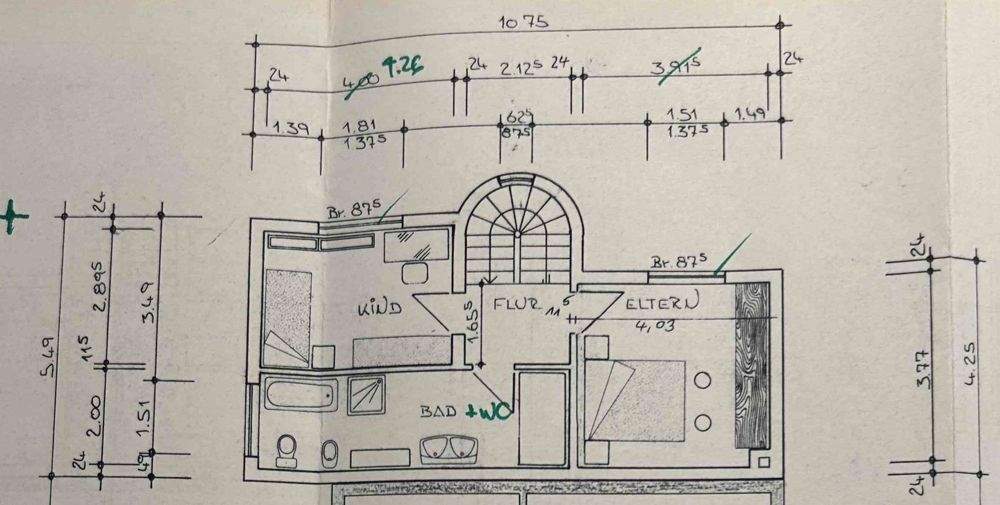 10 75
24 4.00 4.26 24 2.12⁵ 24 3.91⁵ 24
1.39 1.81 62⁵ 1.51 1.49
1.37⁵ 87⁵ 1.37⁵
Br. 87⁵
Br. 87⁵
KIND
FLUR
11⁵
ELTERN
4,03
1.65⁵
BAD + WC
5.49
24
2.89⁵
11⁵
2.00
24
3.49
1.51
49
24
3.77
24
4.25